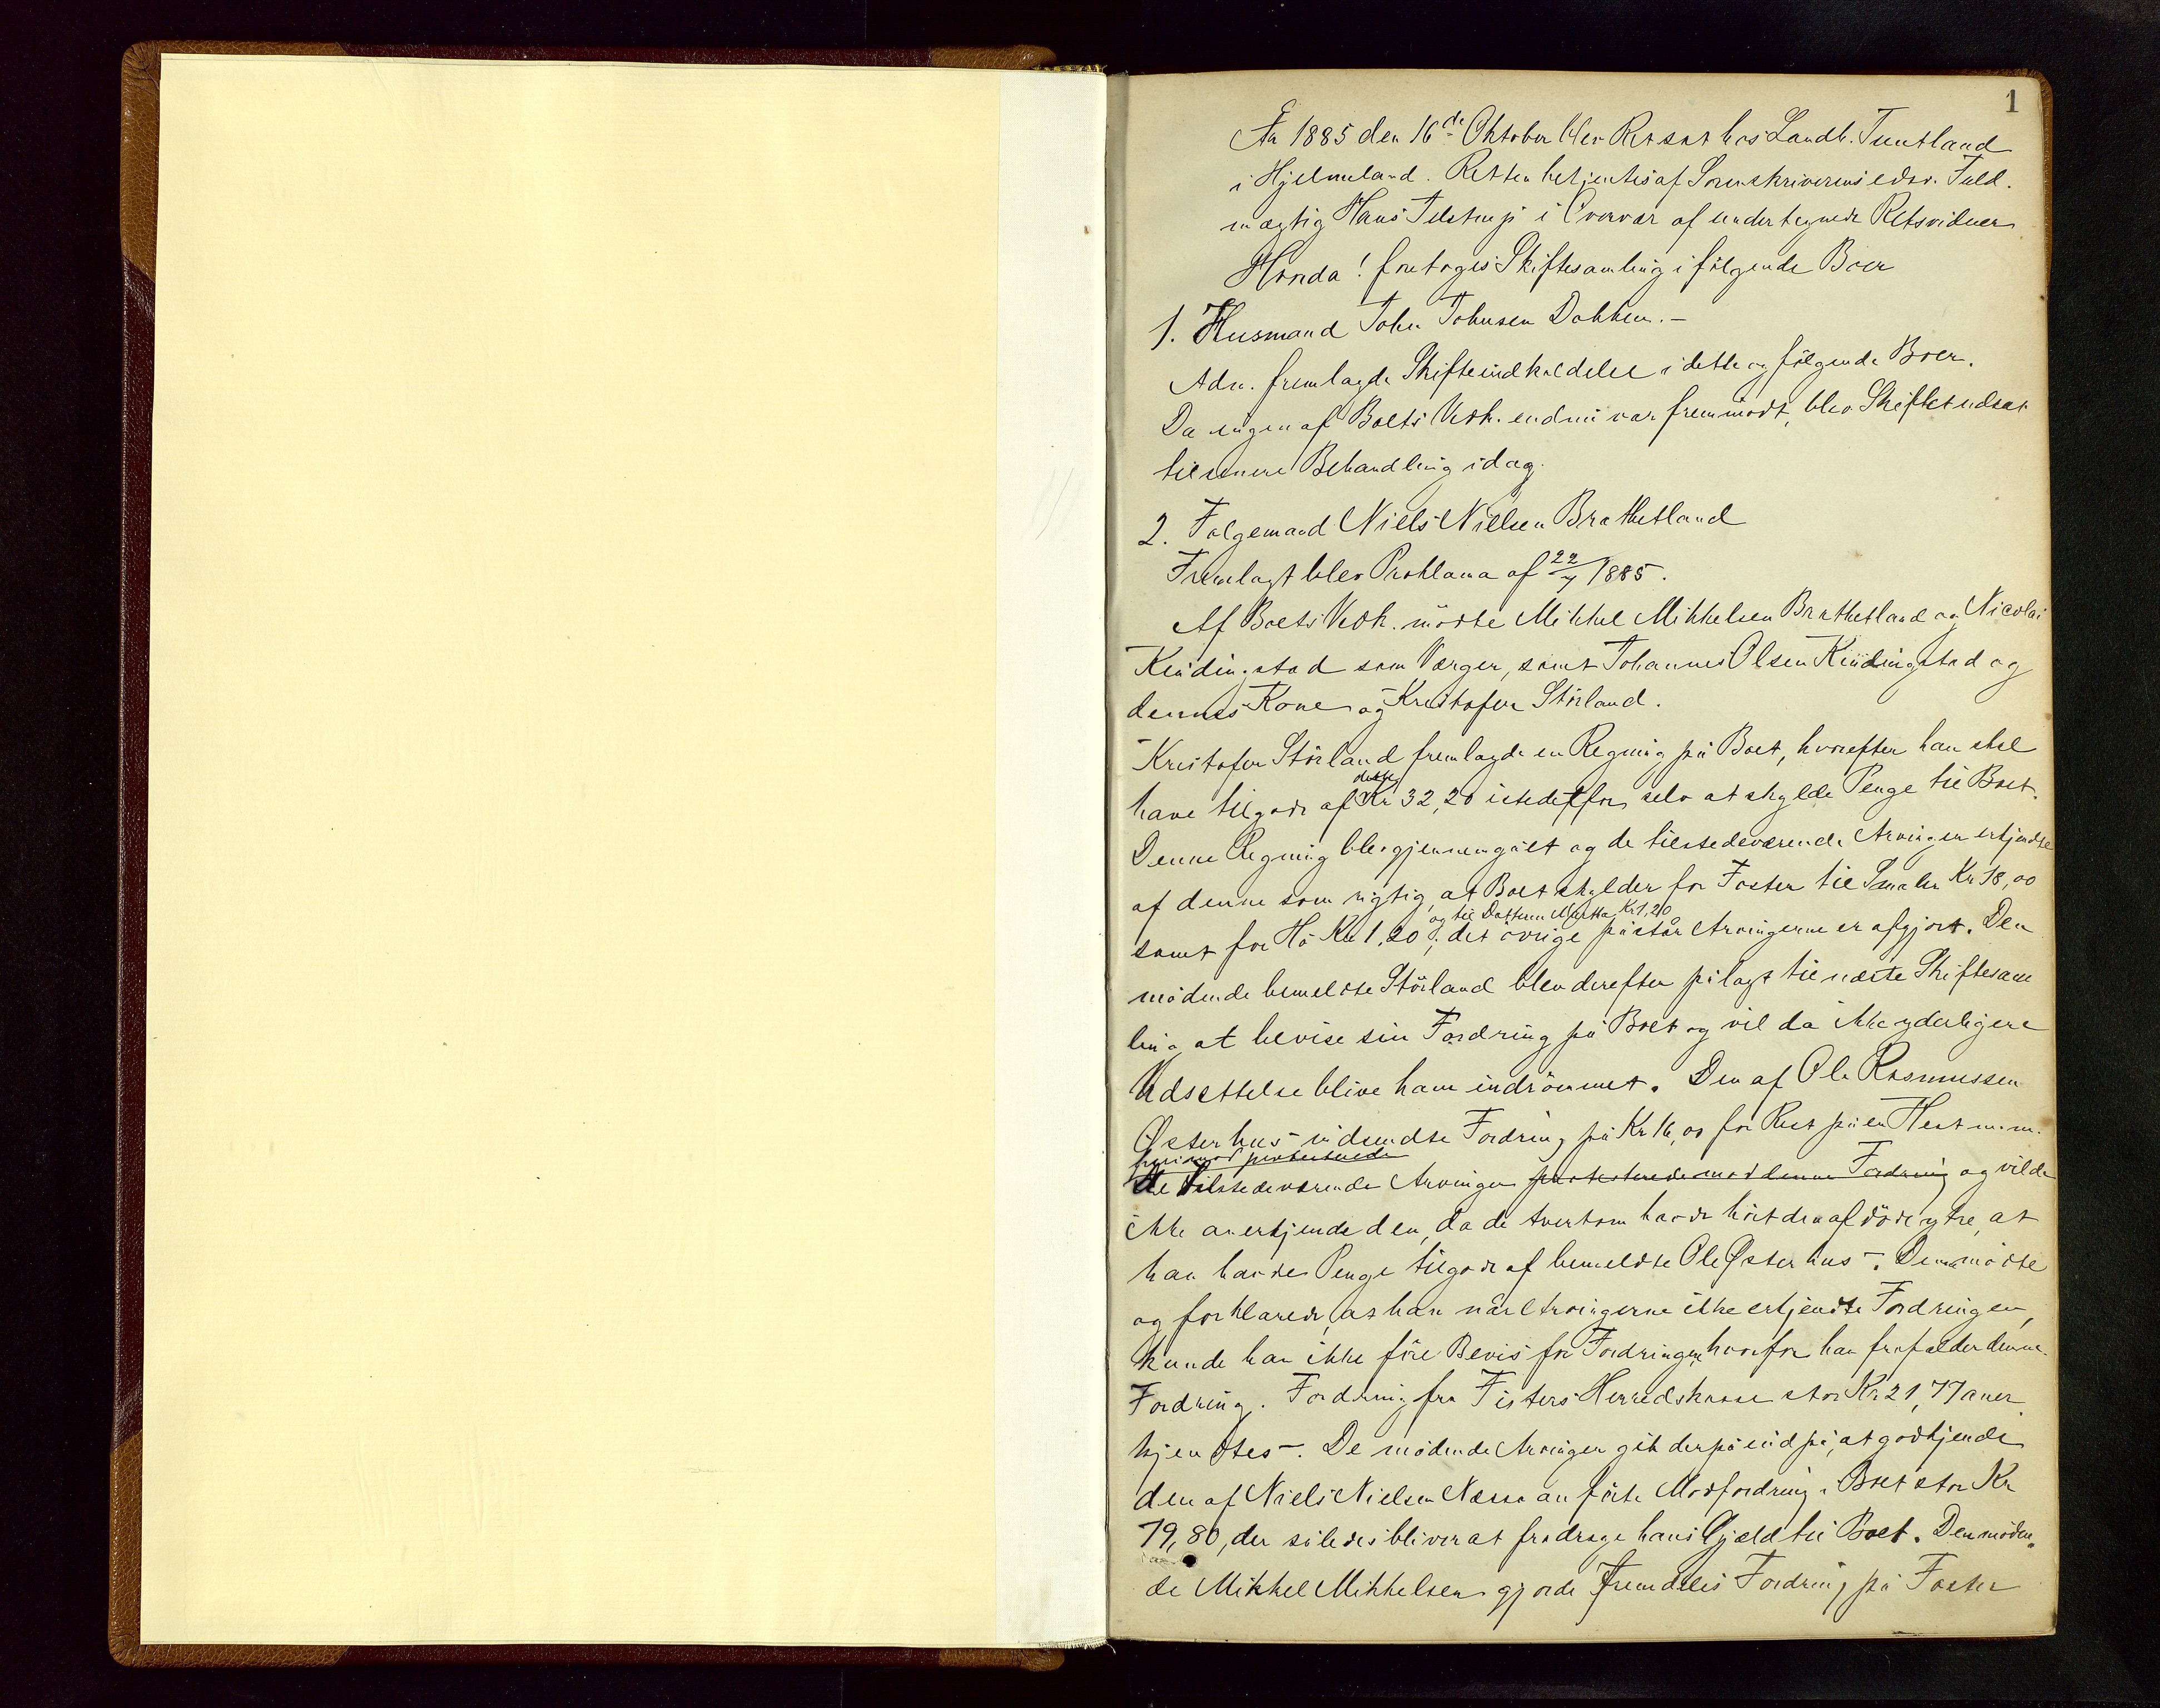 1
År 1885 den 16de Oktober blev Ret sat hos Landh. Tuntland
i Hjelmeland. Retten betjentes af Sorenskriverens edsv. Fuld-
mægtig Hans Tilstrup i Overvær af undertegnede Retsvidner
Hvorda! foretoges Skiftesamling i følgende Boer
1. Husmand John Johnsen Dokken. -
Adm. fremlagde Skifteindkaldelse i dette og følgende Boer.
Da ingen af Boets Vedk. endnu var fremmødt, blev Skiftet udsat
til senere Behandling idag.
2. Folgemand Niels Nielsen Brathetland
Fremlagt blev Proklama af 22/7 1885.
Af Boets Vedk. mödte Mikkel Mikkelsen Brathetland og Nicolai
Kindingstad som Værger, samt Johannes Olsen Kindingstad og
dennes Kone og Kristofer Störland.
Kristofer Störland fremlagde en Regning på Boet, hvorefter han skal
have tilgode af dette Kr 32,20 istedetfor selv at skylde Penge til Boet.
Denne Regning blev gjennemgået og de tilstedeværende Arvinger erkjendte
af denne som rigtig, at Boet skylder for Foster til Smaler Kr 18,00
samt for Hö Kr 1,20 og til Datteren Martha Kr 1,20; det övrige påstår Arvingerne er afgjort. Den
mödende bemeldte Störland blev derefter pålagt til næste Skiftesam
ling at bevise sin Fordring på Boet og vil da ikke yderligere
Udsættelse blive ham indrömmet. Den af Ole Rasmussen
Østerhus indsendte Fordring på Kr 16,00 for Rest på en Hest m.m.
herimod protesterede
de tilstedeværende Arvinger protesterede mod denne Fordring og vilde
ikke anerkjende den, da de tvertom havde hört den afdöde ytre, at
han havde Penge tilgode af bemeldte Ole Østerhus. Denne mödte
og forklarede, at han når Arvingerne ikke erkjendte Fordringen,
kunde han ikke före Bevis for Fordringen, hvorfor han frafalder denne
Fordring. Fordring fra Fisters Herredskasse stor Kr 21,77 aner
kjendtes. De mödende Arvinger gik derpå ind på, at godkjende
den af Niels Nielsen Nessa anförte Modfordring i Boet stor Kr
79,80, der således bliver at fradrage hans Gjæld til Boet. Den möden-
de Mikkel Mikkelsen gjorde fremdeles Fordring på Foster